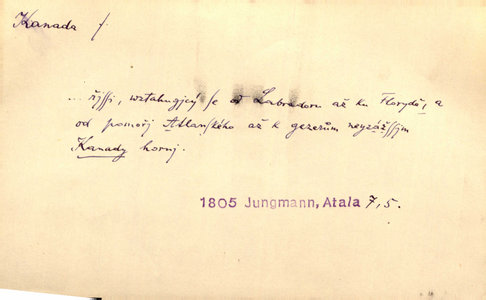 Kanada f.
... řjssi, wztahugjcý se od Labradoru až ku Florydě, a
od pomořj Atlanského až k gezerům neyzážssjm
Kanady hornj.
1805 Jungmann, Atala 7, 5.